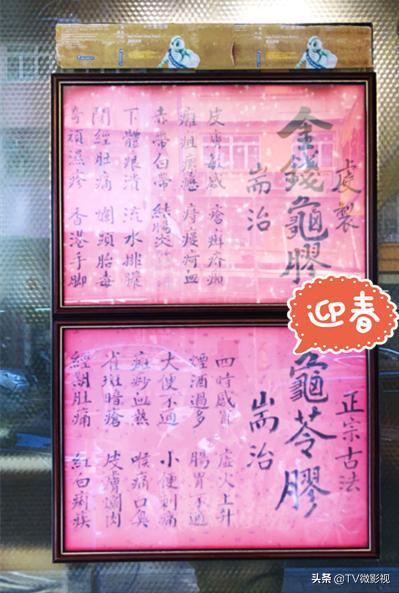 虔製
金錢龜膠
耑治
皮膚敏感 瘡癬疥癩
癰疽 痔瘻疴血
赤帶白帶 結腸炎
下體痕瀆 流水排膿
閉經肚痛 爛頭胎毒
奇頑濕疹 香港手脚
迎春
正宗古法
龜苓膠
耑治
四時感冒 虛火上升
煙酒過多 腸胃不適
大便不通 小便刺痛
斑痧血熱 喉痛口臭
雀斑暗瘡 皮膚肉
經期肚痛 紅白痢疾
头条 @TV微影视